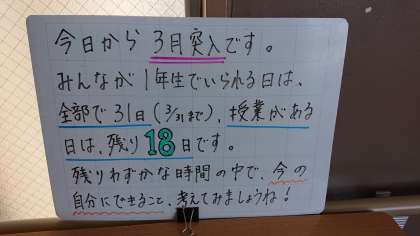 今日から 3月突入です。
みんなが1年生でいられる日は、
全部で31日(3/31まで)、授業がある
日は、残り18日です。
残りわずかな時間の中で、今の
自分にできること、考えてみましょうね!